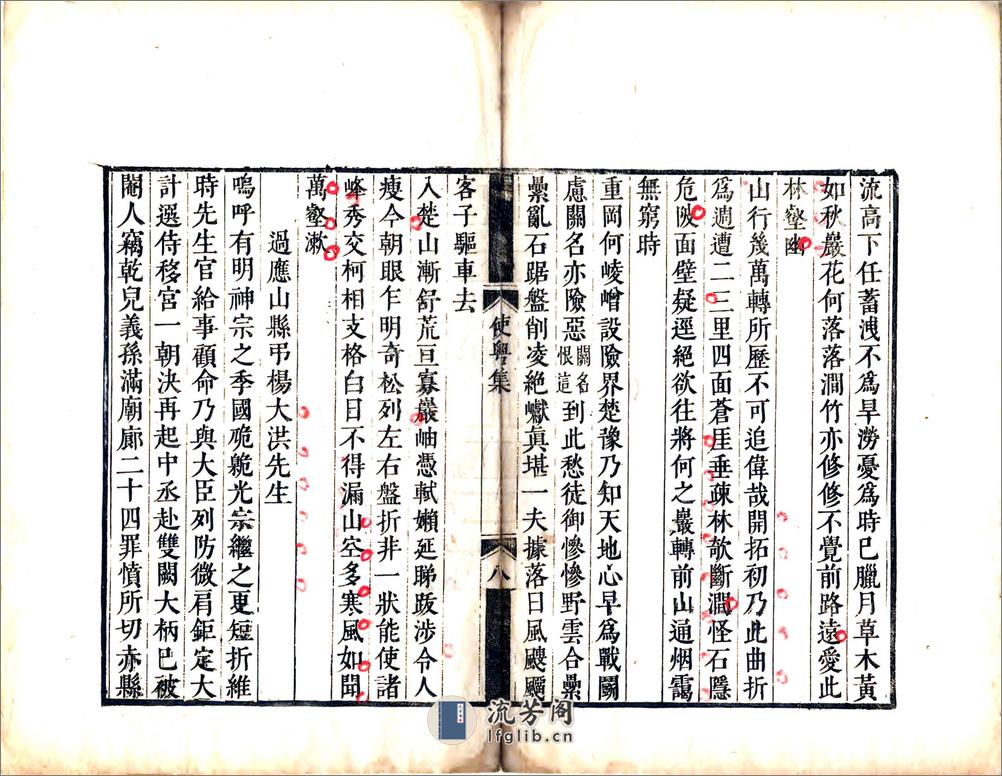 流高下任蓄洩不爲旱澇憂爲時已臘月草木黃
如秋巖花何落落澗竹亦修修不覺前路遠愛此
林壑幽
山行幾萬轉所歷不可追偉哉開拓初乃此曲折
爲遒遭二三里四面蒼厓垂疎林欹斷澗怪石隱
危陂面壁疑逕絕欲往將何之巖轉前山通烟靄
無窮時
重岡何崚嶒設險界楚豫乃知天地心早爲戰鬭
慮關名亦險惡關名恨這到此愁徒御慘慘野雲合纍
纍亂石踞盤削凌絕巘眞堪一夫據落日風飃飃
客子驅車去
使粵集
八
入楚山漸舒荒亘寡巖岫憑軾嬾延睇跋涉令人
瘦今朝眼乍明奇松列左右盤折非一狀能使諸
峰秀交柯相支格白日不得漏山空多寒風如聞
萬壑漱
過應山縣弔楊大洪先生
嗚呼有明神宗之季國兘兘光宗繼之更短折維
時先生官給事顧命乃與大臣列防微肩鉅定大
計選侍移官一朝決再起中丞赴雙闕大柄已被
閹人竊乾兒義孫滿廟廊二十四罪憤所切赤縣
流芳阁
lfglib.cn